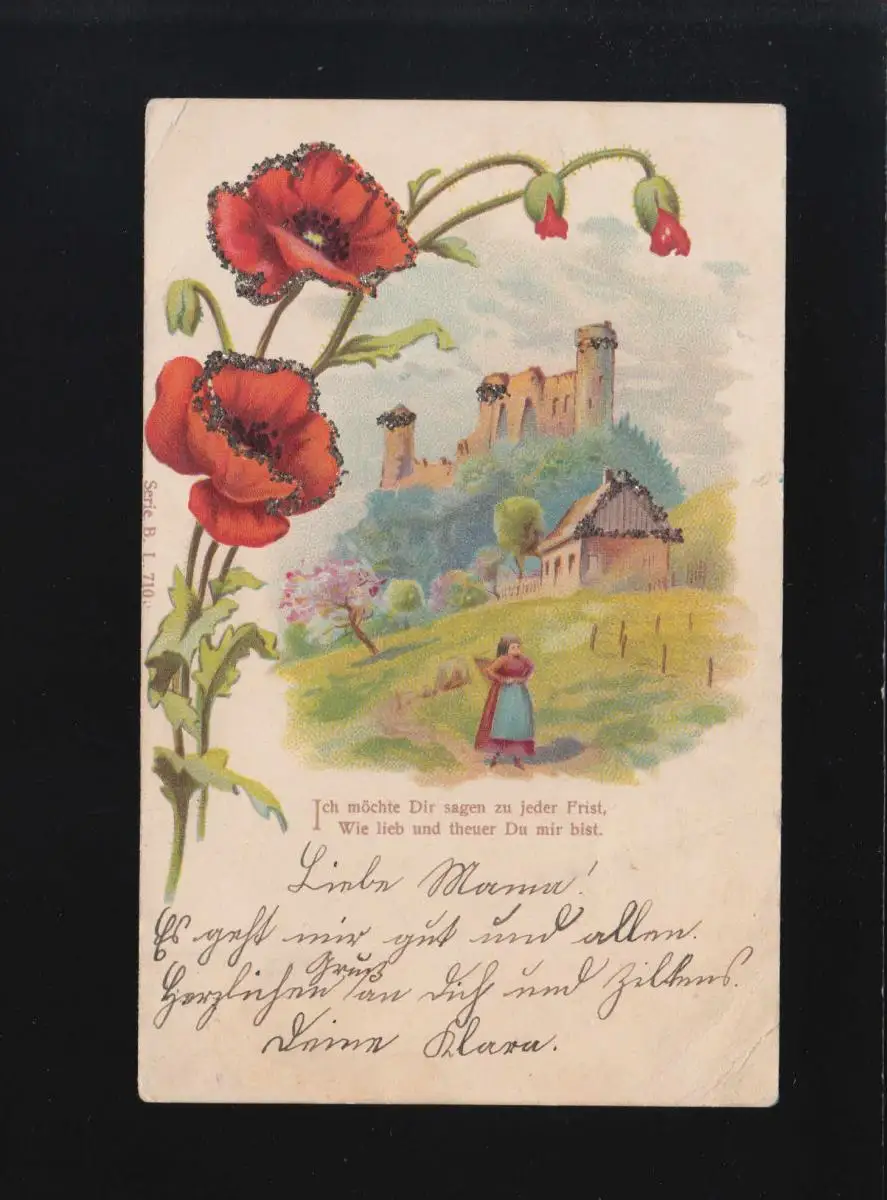 Serie B. L. 710.
Ich möchte Dir sagen zu jeder Frist,
Wie lieb und theuer Du mir bist.
Liebe Mama!
Es geht mir gut und allen.
Herzlichen Gruß an dich und
Deine Klara.